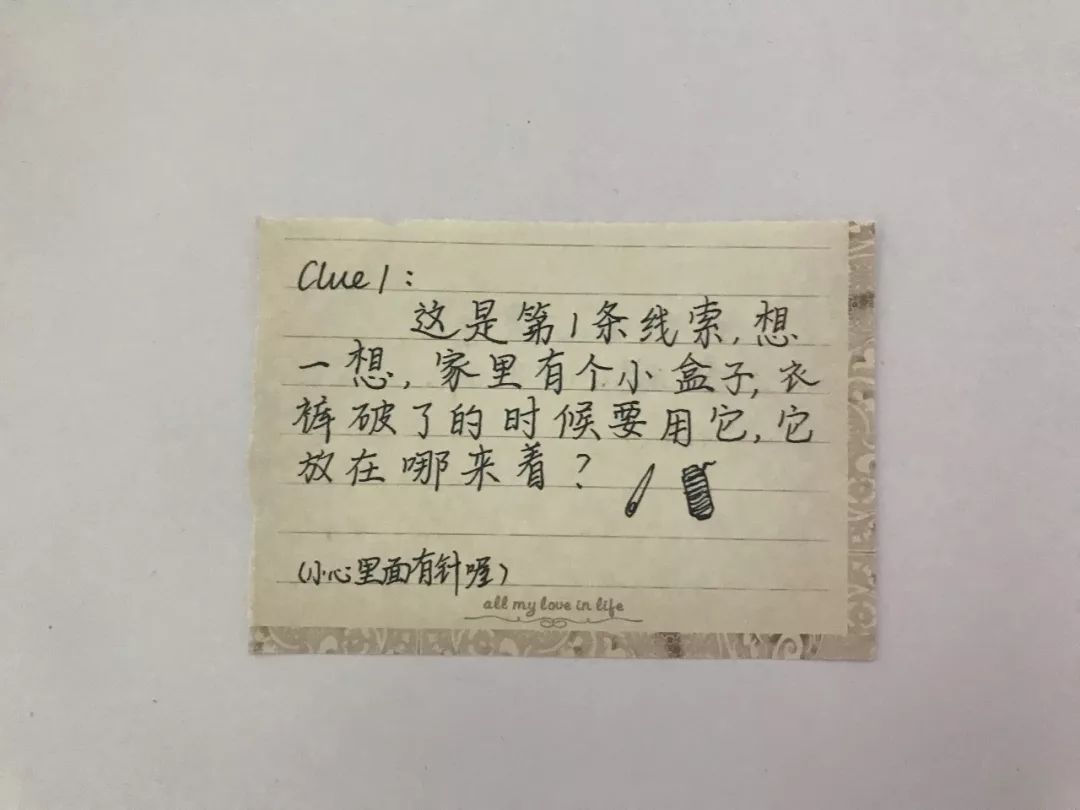 Clue 1:
这是第1条线索,想
一想,家里有个小盒子,衣
裤破了的时候要用它,它
放在哪来着?
(小心里面有针喔)
all my love in life